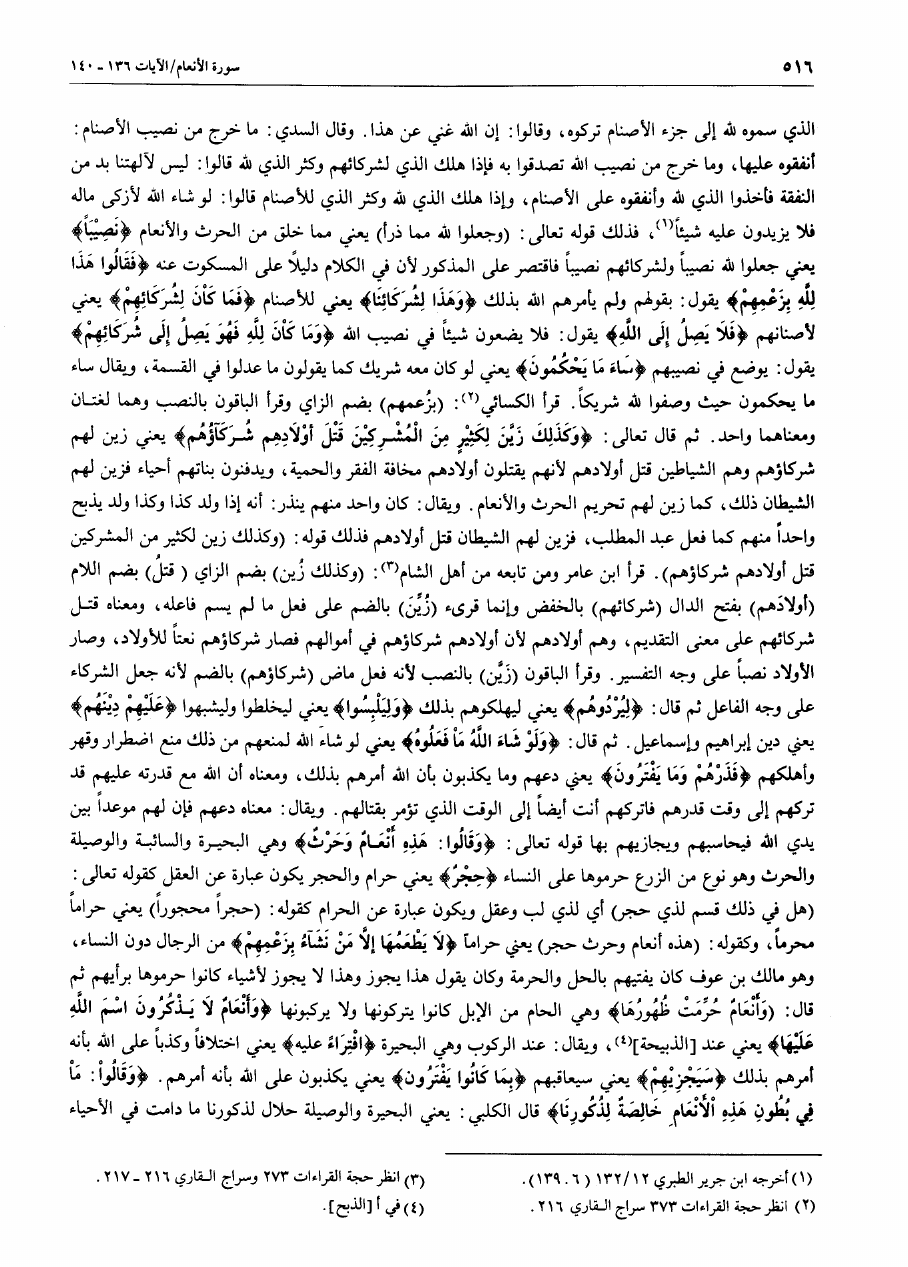 ٥١٦
سورة الأنعام/الآيات ١٣٦ - ١٤٠
الذي سموه لله إلى جزء الأصنام تركوه، وقالوا: إن الله غني عن هذا. وقال السدي: ما خرج من نصيب الأصنام:
أنفقوه عليها، وما خرج من نصيب الله تصدقوا به فإذا هلك الذي لشركائهم وكثر الذي لله قالوا: ليس لآلهتنا بد من
النفقة فأخذوا الذي لله وأنفقوه على الأصنام، وإذا هلك الذي لله وكثر الذي للأصنام قالوا: لو شاء الله لأزكى ماله
فلا يزيدون عليه شيئاً(١)، فذلك قوله تعالى: (وجعلوا لله مما ذرأ) يعني مما خلق من الحرث والأنعام ﴿نَصِيْبَاً﴾
يعني جعلوا لله نصيباً ولشركائهم نصيباً فاقتصر على المذكور لأن في الكلام دليلاً على المسكوت عنه ﴿فَقَالُوا هَذَا
لِلَّهِ بِزَعْمِهِمْ﴾ يقول: بقولهم ولم يأمرهم الله بذلك ﴿وَهَذَا لِشُرَكَائِنَا﴾ يعني للأصنام ﴿فَمَا كَاْنَ لِشُرَكَائِهِمْ﴾ يعني
لأصنانهم ﴿فَلَا يَصِلُ إِلَى اللَّهِ﴾ يقول: فلا يضعون شيئاً في نصيب الله ﴿وَمَا كَاْنَ لِلَّهِ فَهُوَ يَصِلُ إِلَى شُرَكَائِهِمْ﴾
يقول: يوضع في نصيبهم ﴿سَاءَ مَا يَحْكُمُونَ﴾ يعني لو كان معه شريك كما يقولون ما عدلوا في القسمة، ويقال ساء
ما يحكمون حيث وصفوا لله شريكاً. قرأ الكسائي(٢): (بزُعمهم) بضم الزاي وقرأ الباقون بالنصب وهما لغتان
ومعناهما واحد. ثم قال تعالى: ﴿وَكَذَلِكَ زَيَّنَ لِكَثِيْرٍ مِنَ الْمُشْرِكِيْنَ قَتْلَ أَوْلَادِهِم شُرَكَآؤُهُم﴾ يعني زين لهم
شركاؤهم وهم الشياطين قتل أولادهم لأنهم يقتلون أولادهم مخافة الفقر والحمية، ويدفنون بناتهم أحياء فزين لهم
الشيطان ذلك، كما زين لهم تحريم الحرث والأنعام. ويقال: كان واحد منهم ينذر: أنه إذا ولد كذا وكذا ولد يذبح
واحداً منهم كما فعل عبد المطلب، فزين لهم الشيطان قتل أولادهم فذلك قوله: (وكذلك زين لكثير من المشركين
قتل أولادهم شركاؤهم). قرأ ابن عامر ومن تابعه من أهل الشام(٣): (وكذلك زُين) بضم الزاي ( قتلُ) بضم اللام
(أولادَهم) بفتح الدال (شركائهم) بالخفض وإنما قرىء (زُيِّنَ) بالضم على فعل ما لم يسم فاعله، ومعناه قتل
شركائهم على معنى التقديم، وهم أولادهم لأن أولادهم شركاؤهم في أموالهم فصار شركاؤهم نعتاً للأولاد، وصار
الأولاد نصباً على وجه التفسير. وقرأ الباقون (زَيَّن) بالنصب لأنه فعل ماض (شركاؤهم) بالضم لأنه جعل الشركاء
على وجه الفاعل ثم قال: ﴿لِيُرْدُوهُم﴾ يعني ليهلكوهم بذلك ﴿وَلِيَلْبِسُوا﴾ يعني ليخلطوا وليشبهوا ﴿عَلَيْهِمْ دِيْنَهُم﴾
يعني دين إبراهيم وإسماعيل. ثم قال: ﴿وَلَوْ شَاءَ اللَّهُ مَاْ فَعَلُوهُ﴾ يعني لو شاء الله لمنعهم من ذلك منع اضطرار وقهر
وأهلكهم ﴿فَذَرْهُمْ وَمَا يَفْتَرُونَ﴾ يعني دعهم وما يكذبون بأن الله أمرهم بذلك، ومعناه أن الله مع قدرته عليهم قد
تركهم إلى وقت قدرهم فاتركهم أنت أيضاً إلى الوقت الذي تؤمر بقتالهم. ويقال: معناه دعهم فإن لهم موعداً بين
يدي الله فيحاسبهم ويجازيهم بها قوله تعالى: ﴿وَقَالُوا: هَذِهِ أَنْعَامٌ وَحَرْثٌ﴾ وهي البحيرة والسائبة والوصيلة
والحرث وهو نوع من الزرع حرموها على النساء ﴿حِجْرٌ﴾ يعني حرام والحجر يكون عبارة عن العقل كقوله تعالى:
(هل في ذلك قسم لذي حجر) أي لذي لب وعقل ويكون عبارة عن الحرام كقوله: (حجراً محجوراً) يعني حراماً
محرماً، وكقوله: (هذه أنعام وحرث حجر) يعني حراماً ﴿لَا يَطْعَمُهَا إِلَّا مَنْ نَشَآءُ بِزَعْمِهِمْ﴾ من الرجال دون النساء،
وهو مالك بن عوف كان يفتيهم بالحل والحرمة وكان يقول هذا يجوز وهذا لا يجوز لأشياء كانوا حرموها برأيهم ثم
قال: (وَأَنْعَامٌ حُرِّمَتْ ظُهُورُهَا﴾ وهي الحام من الإبل كانوا يتركونها ولا يركبونها ﴿وَأَنْعَامٌ لَا يَذْكُرُونَ اسْمَ اللَّهِ
عَلَيْهَا﴾ يعني عند [الذبيحة](٤)، ويقال: عند الركوب وهي البحيرة ﴿افْتِرَاءً عليه﴾ يعني اختلافاً وكذباً على الله بأنه
أمرهم بذلك ﴿سَيَجْزِيْهِمْ﴾ يعني سيعاقبهم ﴿بِمَا كَانُوا يَفْتَرُون﴾ يعني يكذبون على الله بأنه أمرهم. ﴿وَقَالُواْ: مَاْ
فِي بُطُونِ هَذِهِ اْلأَنْعَامِ خَالِصَةٌ لِذُكُورِنَا﴾ قال الكلبي: يعني البحيرة والوصيلة حلال لذكورنا ما دامت في الأحياء
(١) أخرجه ابن جرير الطبري ١٣٢/١٢ (١٣٩.٦).
(٢) انظر حجة القراءات ٣٧٣ سراج القاري ٢١٦.
(٣) انظر حجة القراءات ٢٧٣ وسراج القاري ٢١٦ - ٢١٧.
(٤) في أ [الذبح].